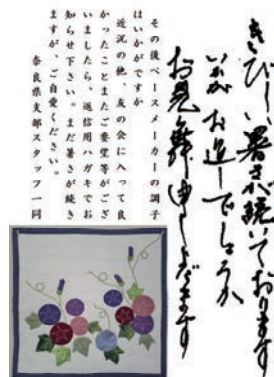 きびしい暑さが続いております
いかがお過しでしょうか
お見舞申し上げます
その後ペースメーカーの調子
はいかがですか
近況の他、友の会に入って良
かったことまたご要望等がござ
いましたら、返信用ハガキでお
知らせ下さい。まだ暑さが続き
ますが、ご自愛ください。
奈良県支部スタッフ一同